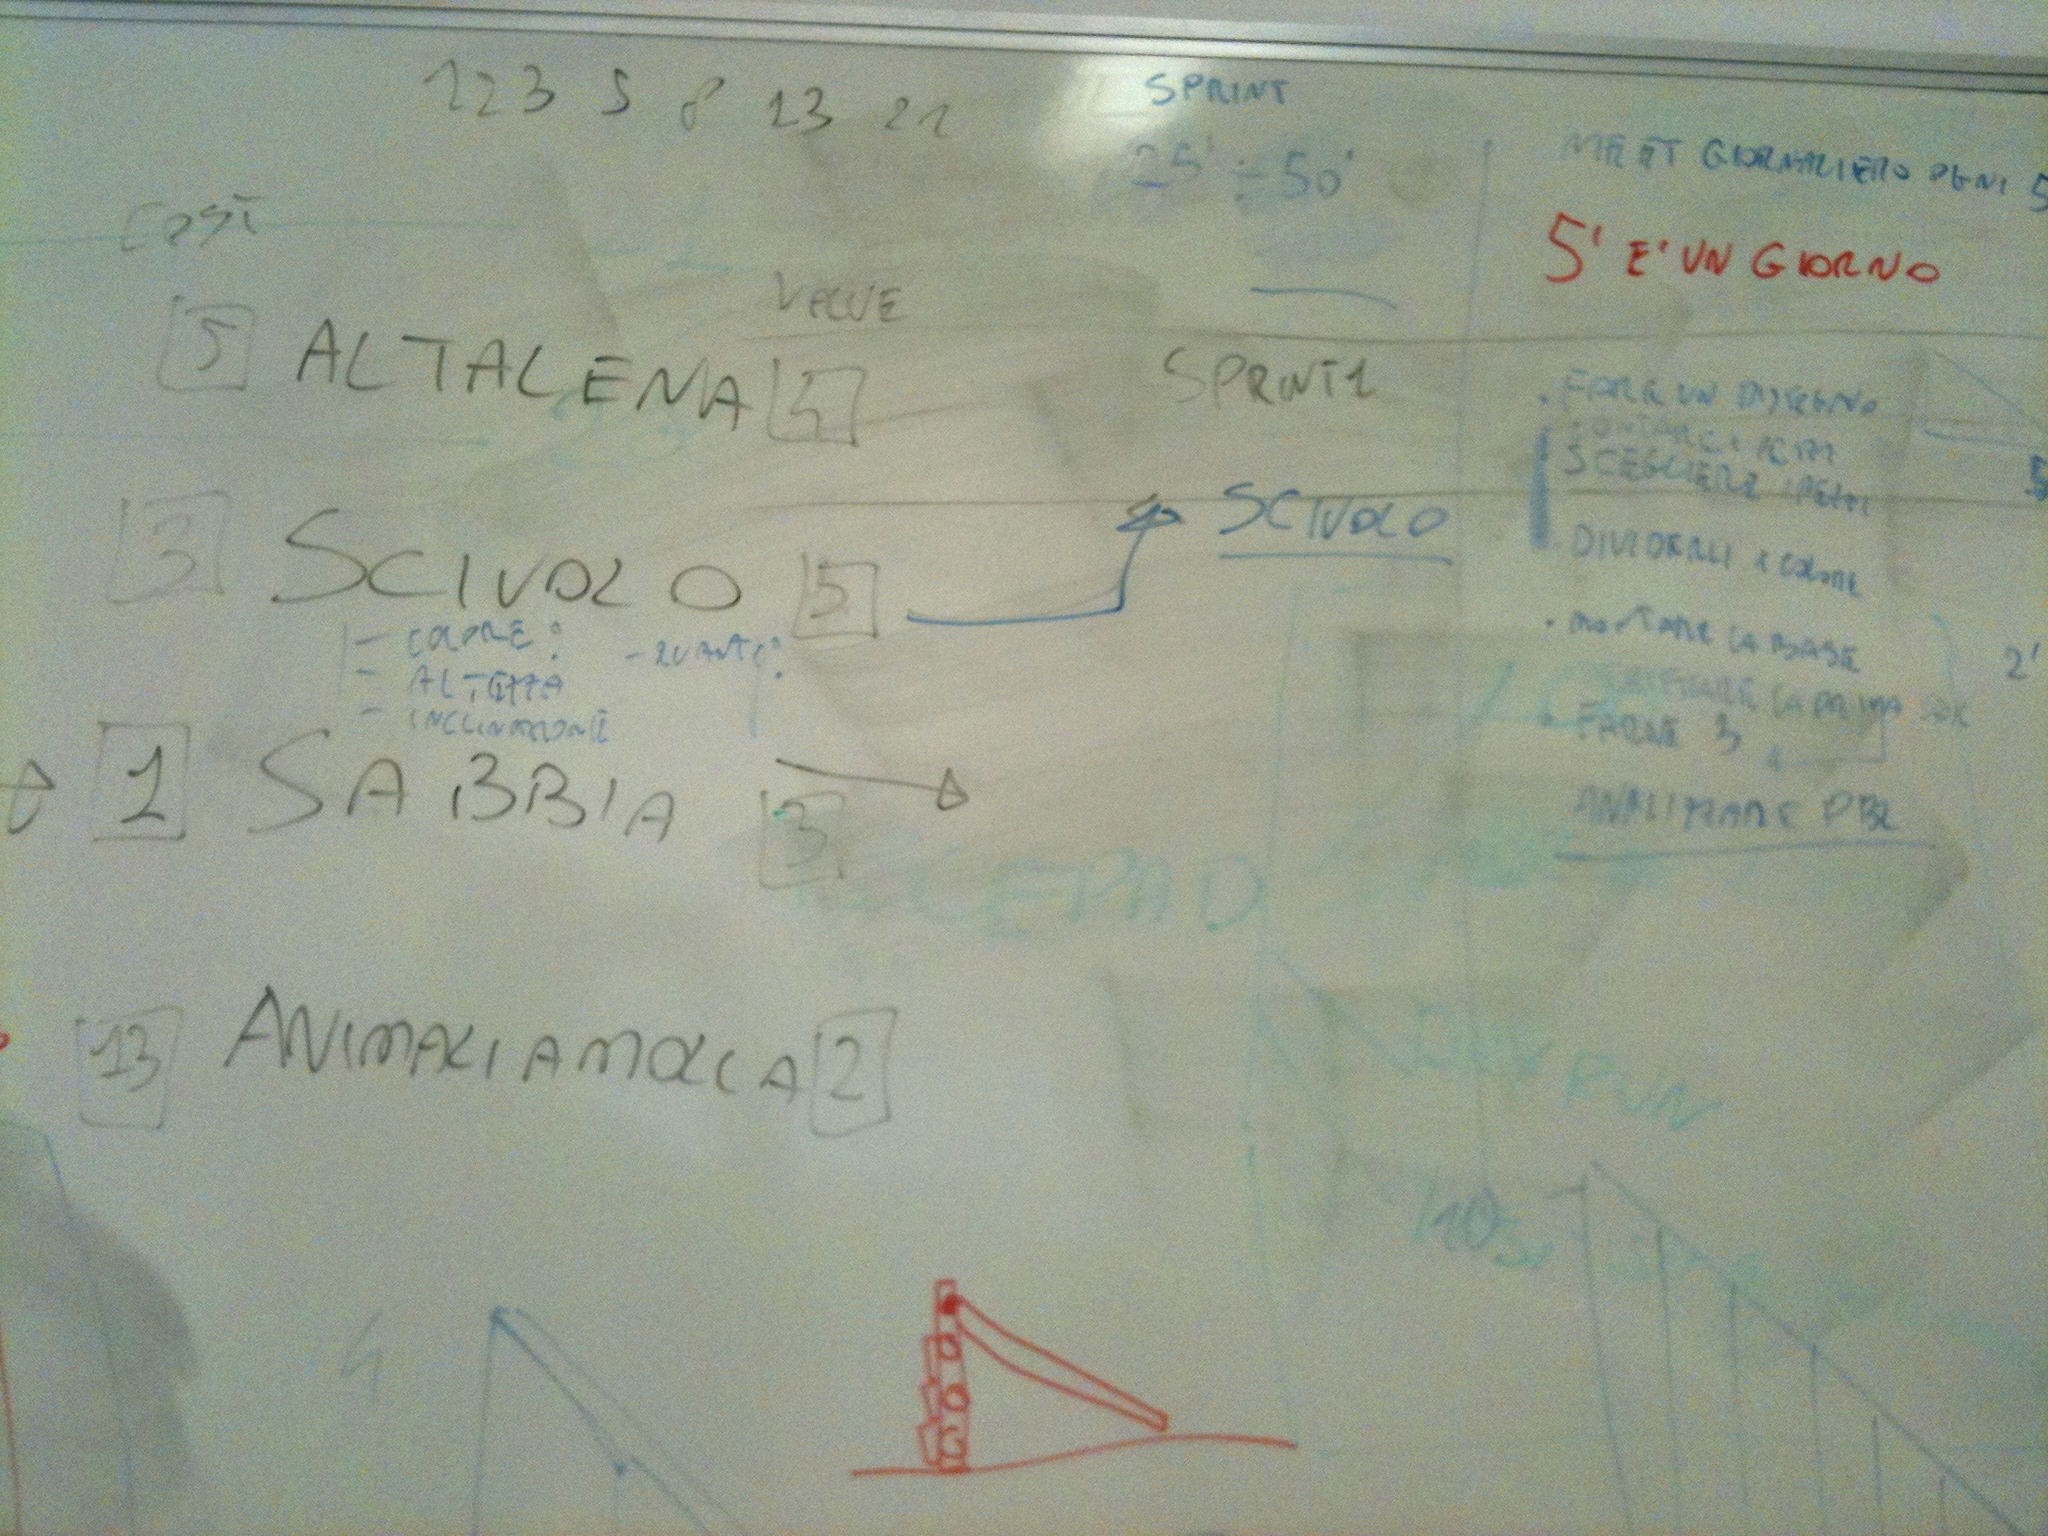 1 2 3 5 8 13 21
SPRINT
25' ÷ 50'
MEET GIORNALIERO OGNI 5
5' E' UN GIORNO
COST
VALUE
5 ALTALENA
SPRINT 1
FARE UN DISEGNO
SCEGLIERE I PEZZI
DIVIDERLI X COLORE
3 SCIVOLO 5
SCIVOLO
- COLORE?
- QUANTI?
- ALTEZZA
- INCLINAZIONE
• MONTARE LA BASE
2'
LA PRIMA
• FARNE 3
ANALIZZARE PBL
1 SABBIA 3
13 ANIMALI A MOLLA 2